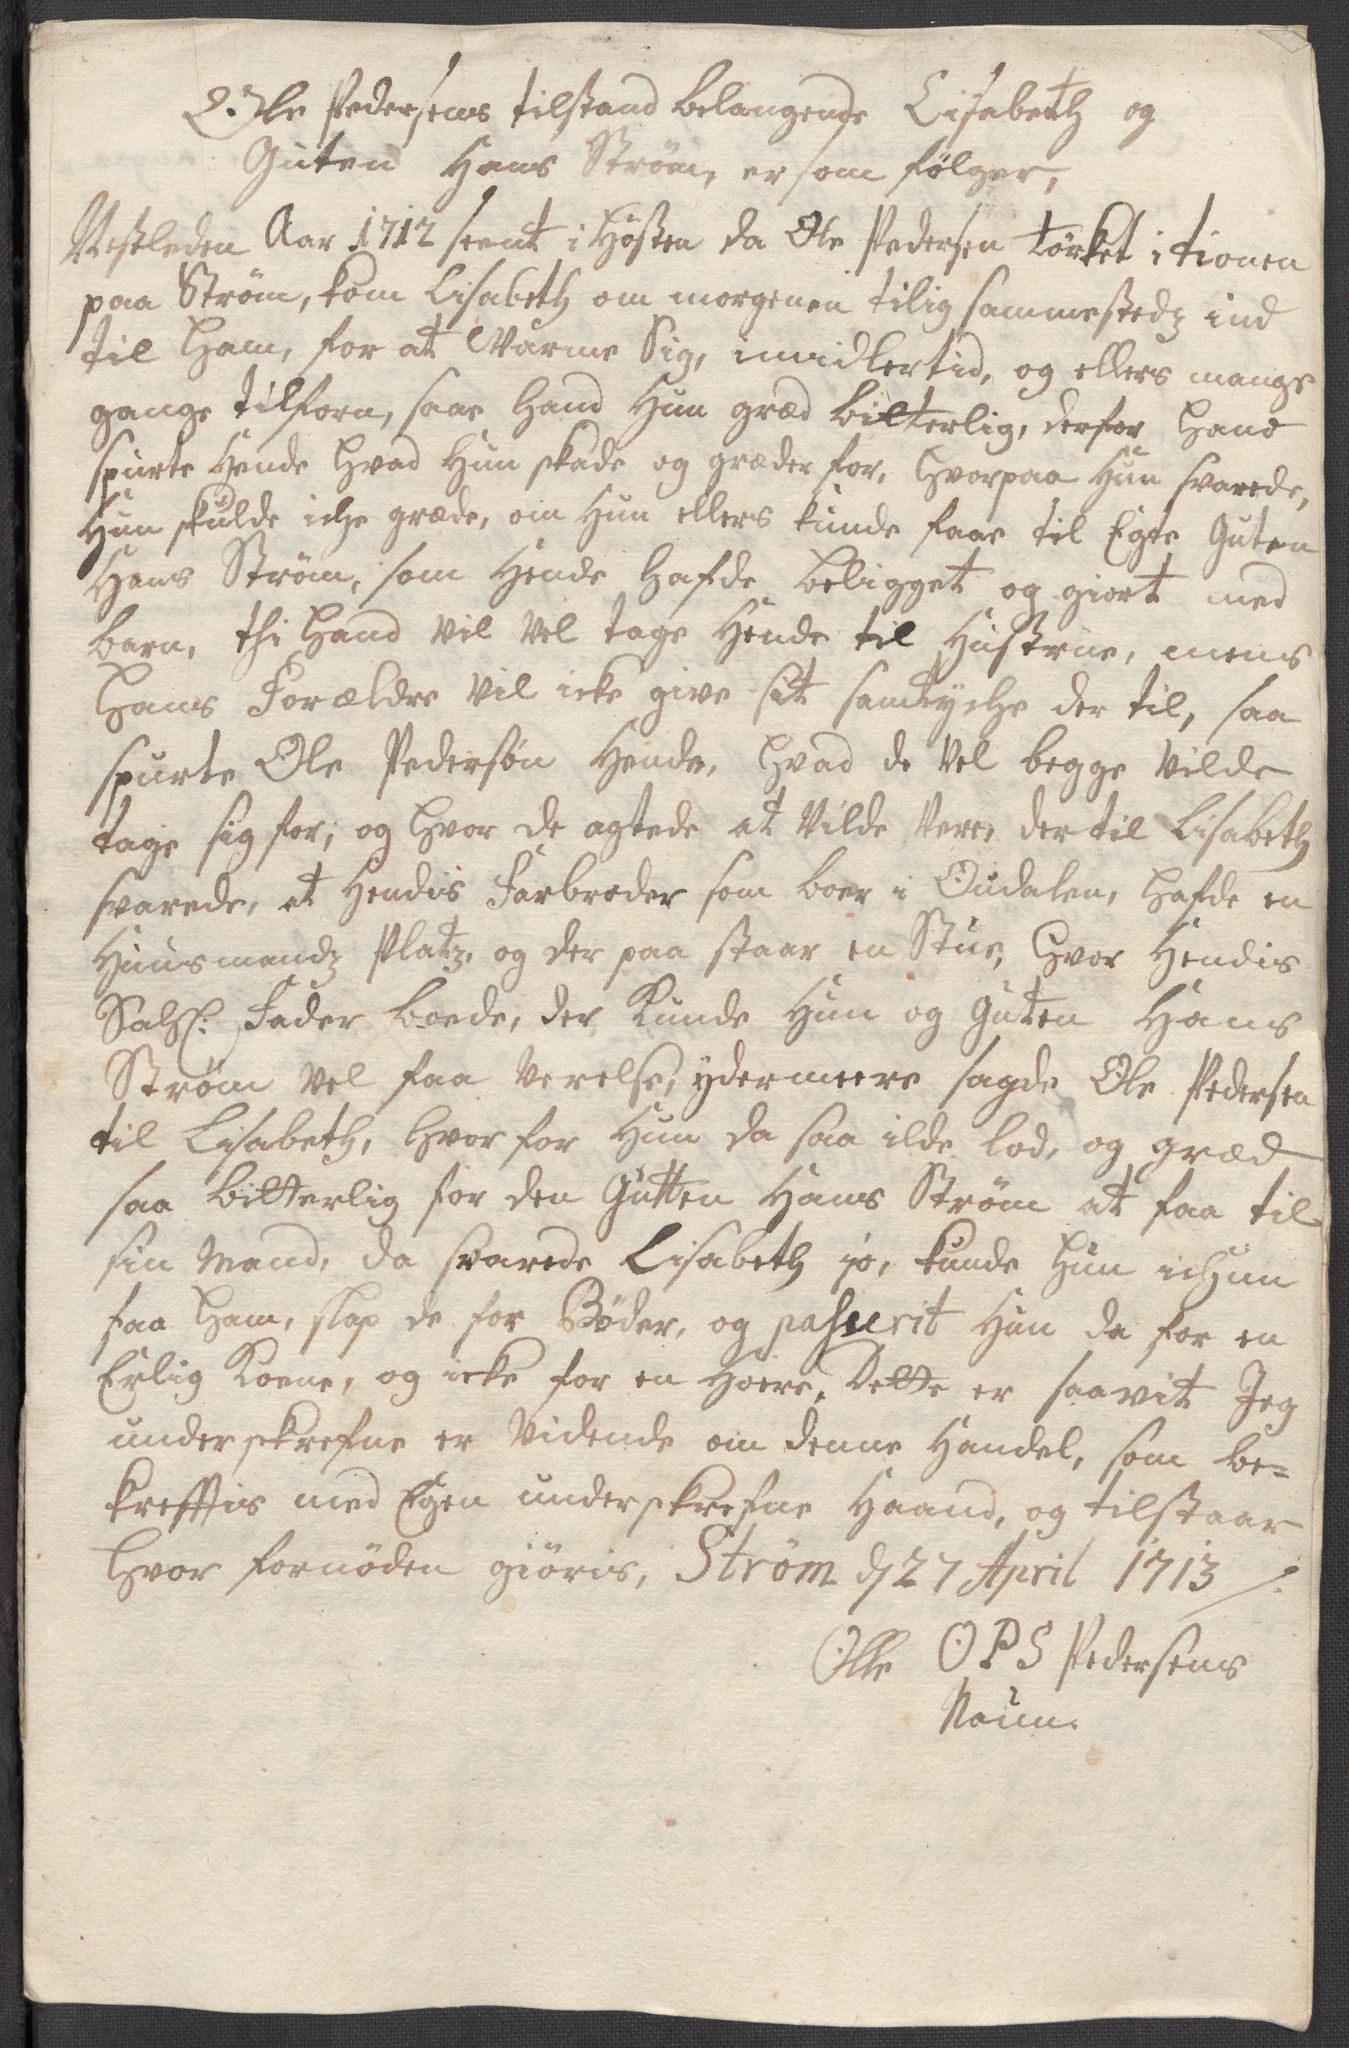 Ole Pedersens tilstand belangende Lisabeth og
Guten Hans Strøm, er som følger,
Nestleden Aar 1712 seent i Høsten da Ole Pedersen tørket i tionen
paa Strøm, kom Lisabeth om morgenen tilig sammestedz ind
til ham, for at Varme Sig, imidlertid, og ellers mange
gange tilforn, saae hand Hun græd bitterlig, derfor hand
spurte Hende hvad Hun skade og græder for, hvorpaa Hun svarede,
Hun skulde iche græde, om Hun ellers kunde faae til Egte Guten
Hans Strøm, som Hende hafde beligget og giort med
barn, thi hand vil vel tage Hende til Hustrue, mens
hans Forældre vil icke give sit samtyche der til, saa
spurte Ole Pedersøn Hende, hvad de vel begge vilde
tage sig for, og hvor de agtede at vilde være, der til Lisabeth
svarede, at Hendis Farbroder som boer i Oudalen, hafde en
Huusmandz Platz, og der paa staar en Stue, hvor Hendis
Salf: Fader boede, der kunde Hun og Guten Hans
Strøm vel faa Verelse, ydermeere sagde Ole Pedersen
til Lisabeth, hvor for Hun da saa ilde lod, og græd
saa bitterlig for den Gutten Hans Strøm at faa til
sin Mand, da svarede Lisabeth jo, kunde hun ichun
faa ham, slap de for Bøder, og pasherit Hun da for en
Erlig Koene, og icke for en Hoere, Dette er saavit Jeg
underskrefne er vidende om denne Handel, som be=
krefftis med Egen underskrefne Haand, og tilstaar
hvor fornøden giøris, Strøm d 27 April 1713 /.
Olle OPS Pedersens
Naun.